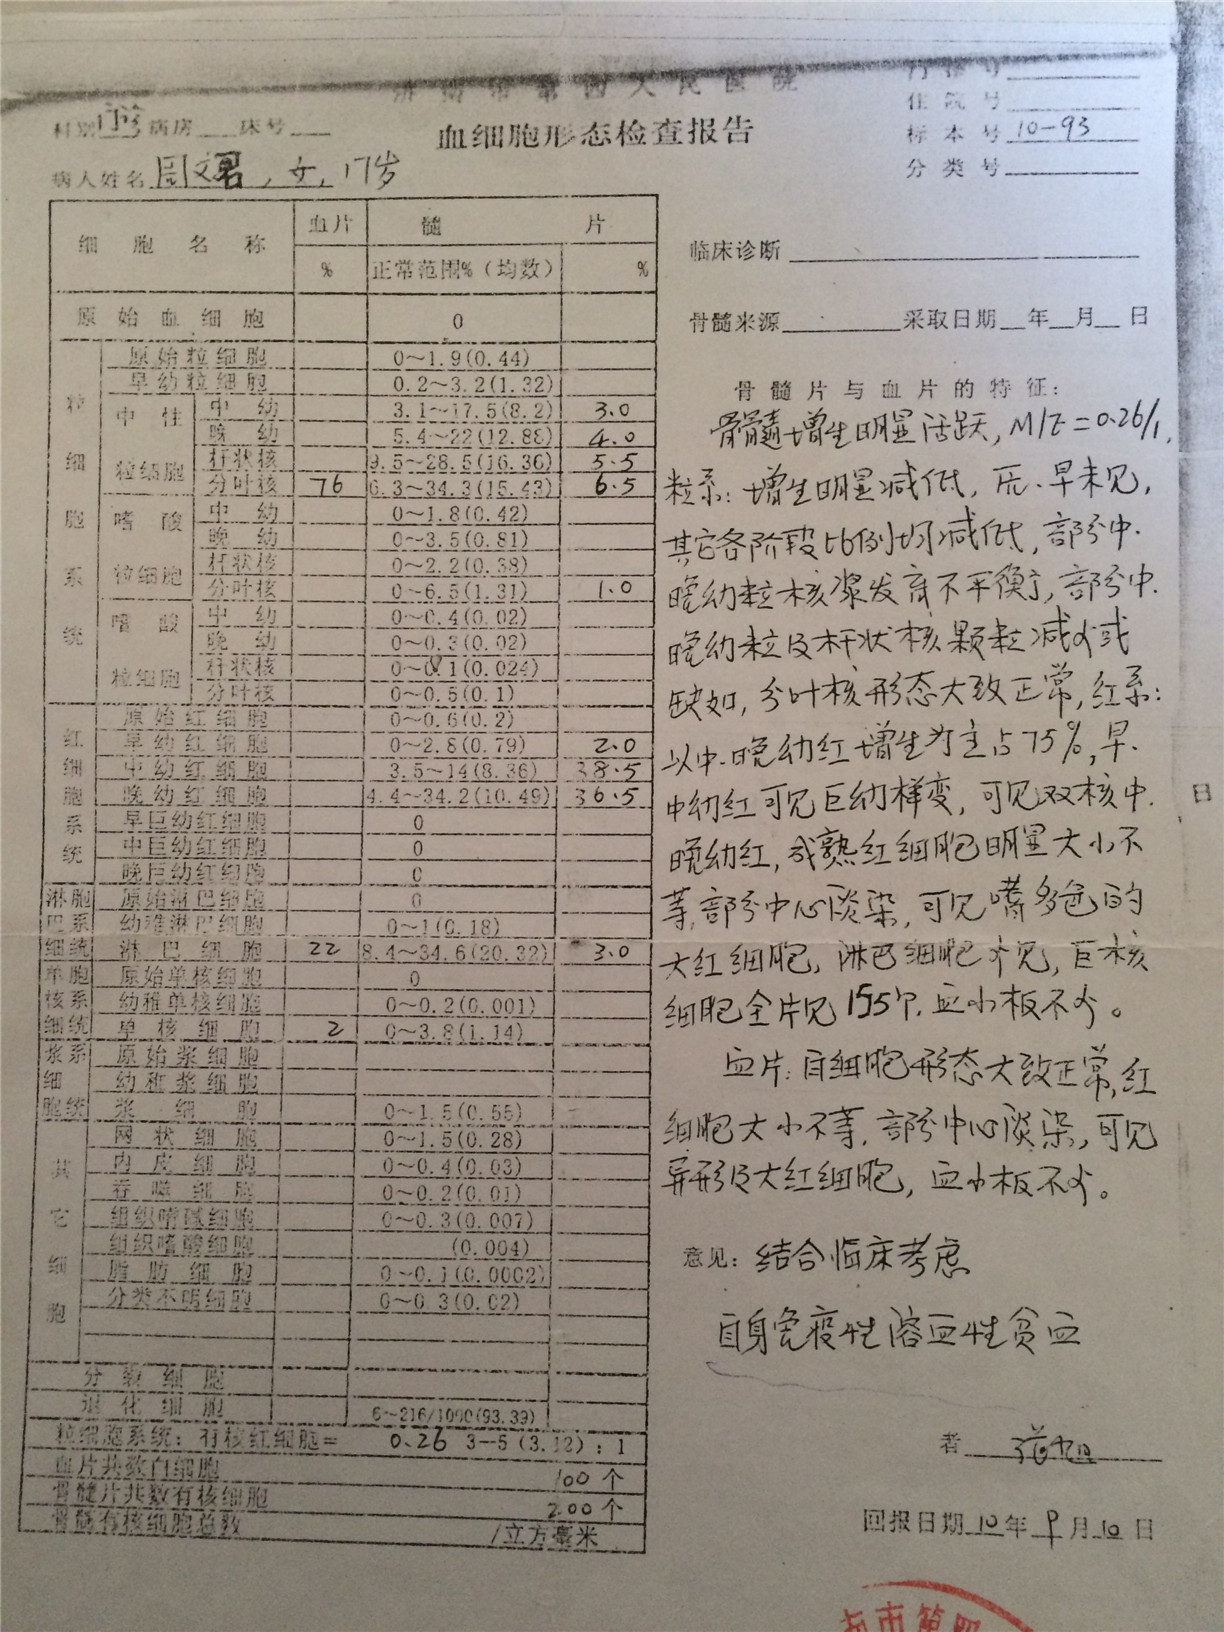 血细胞形态检查报告
科别 病房 床号
住院号
标本号 10-93
分类号
病人姓名 周文君，女，17岁
细胞名称 血片 髓片
% 正常范围%(均数) %
原始血细胞 0
粒细胞系统
原始粒细胞 0~1.9(0.44)
早幼粒细胞 0.2~3.2(1.32)
中性粒细胞 中幼 3.1~17.5(8.2) 3.0
晚幼 5.4~22(12.88) 4.0
杆状核 9.5~28.5(16.36) 5.5
分叶核 76 6.3~34.3(15.43) 6.5
嗜酸粒细胞 中幼 0~1.8(0.42)
晚幼 0~3.5(0.81)
杆状核 0~2.2(0.38)
分叶核 0~6.5(1.31) 1.0
嗜酸粒细胞 中幼 0~0.4(0.02)
晚幼 0~0.3(0.02)
杆状核 0~0.1(0.024)
分叶核 0~0.5(0.1)
红细胞系统
原始红细胞 0~0.6(0.2)
早幼红细胞 0~2.8(0.79) 2.0
中幼红细胞 3.5~14(8.36) 38.5
晚幼红细胞 4.4~34.2(10.49) 36.5
早巨幼红细胞 0
中巨幼红细胞 0
晚巨幼红细胞 0
淋巴细胞系统
原始淋巴细胞 0
幼稚淋巴细胞 0~1(0.18)
淋巴细胞 22 8.4~34.6(20.32) 3.0
单核细胞系统
原始单核细胞 0
幼稚单核细胞 0~0.2(0.001)
单核细胞 2 0~3.8(1.14)
浆细胞系统
原始浆细胞
幼稚浆细胞
浆细胞 0~1.5(0.55)
其它细胞
网状细胞 0~1.5(0.28)
内皮细胞 0~0.4(0.03)
吞噬细胞 0~0.2(0.01)
组织嗜碱细胞 0~0.3(0.007)
组织嗜酸细胞 (0.004)
脂肪细胞 0~0.1(0.0002)
分类不明细胞 0~0.3(0.02)
分裂细胞
退化细胞 6~216/1000(93.39)
粒细胞系统：有核红细胞= 0.26 3-5(3.12)：1
血片共数白细胞 100 个
骨髓片共数有核细胞 200 个
骨髓有核细胞总数 /立方毫米
临床诊断
骨髓来源 采取日期 年 月 日
骨髓片与血片的特征：
骨髓增生明显活跃，M/E=0.26/1，
粒系：增生明显减低，原、早未见，
其它各阶段比例均减低，部分中、
晚幼粒核浆发育不平衡，部分中、
晚幼粒及杆状核颗粒减少或
缺如，分叶核形态大致正常，红系：
以中、晚幼红增生为主占75%，早、
中幼红可见巨幼样变，可见双核中、
晚幼红，成熟红细胞明显大小不
等，部分中心淡染，可见嗜多色的
大红细胞，淋巴细胞少见，巨核
细胞全片见155个，血小板不少。
血片：白细胞形态大致正常，红
细胞大小不等，部分中心淡染，可见
异形及大红细胞，血小板不少。
意见：结合临床考虑
自身免疫性溶血性贫血
者
回报日期 10年9月10日
日
市第四